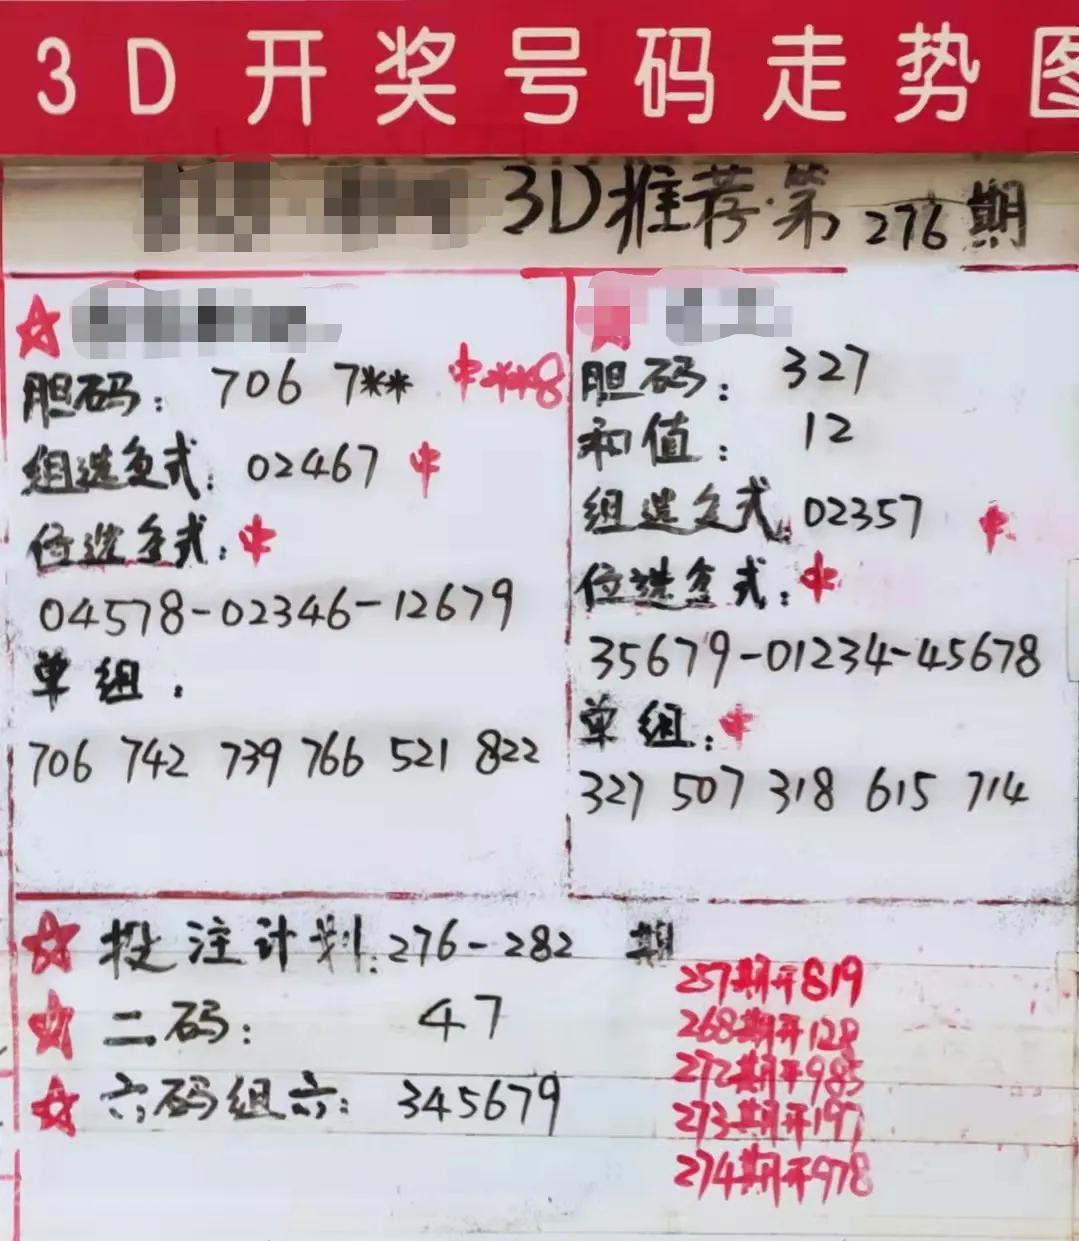 3D开奖号码走势图
3D推荐·第276期
胆码: 706 7** 中**8
组选复式: 02467 中
位选复式: 中
04578-02346-12679
单组:
706 742 739 766 521 822
胆码: 327
和值: 12
组选复式: 02357 中
位选复式: 中
35679-01234-45678
单组: 中
327 507 318 615 714
投注计划: 276-282 期
二码: 47
六码组六: 345679
257期开819
268期开128
272期开985
273期开197
274期开978